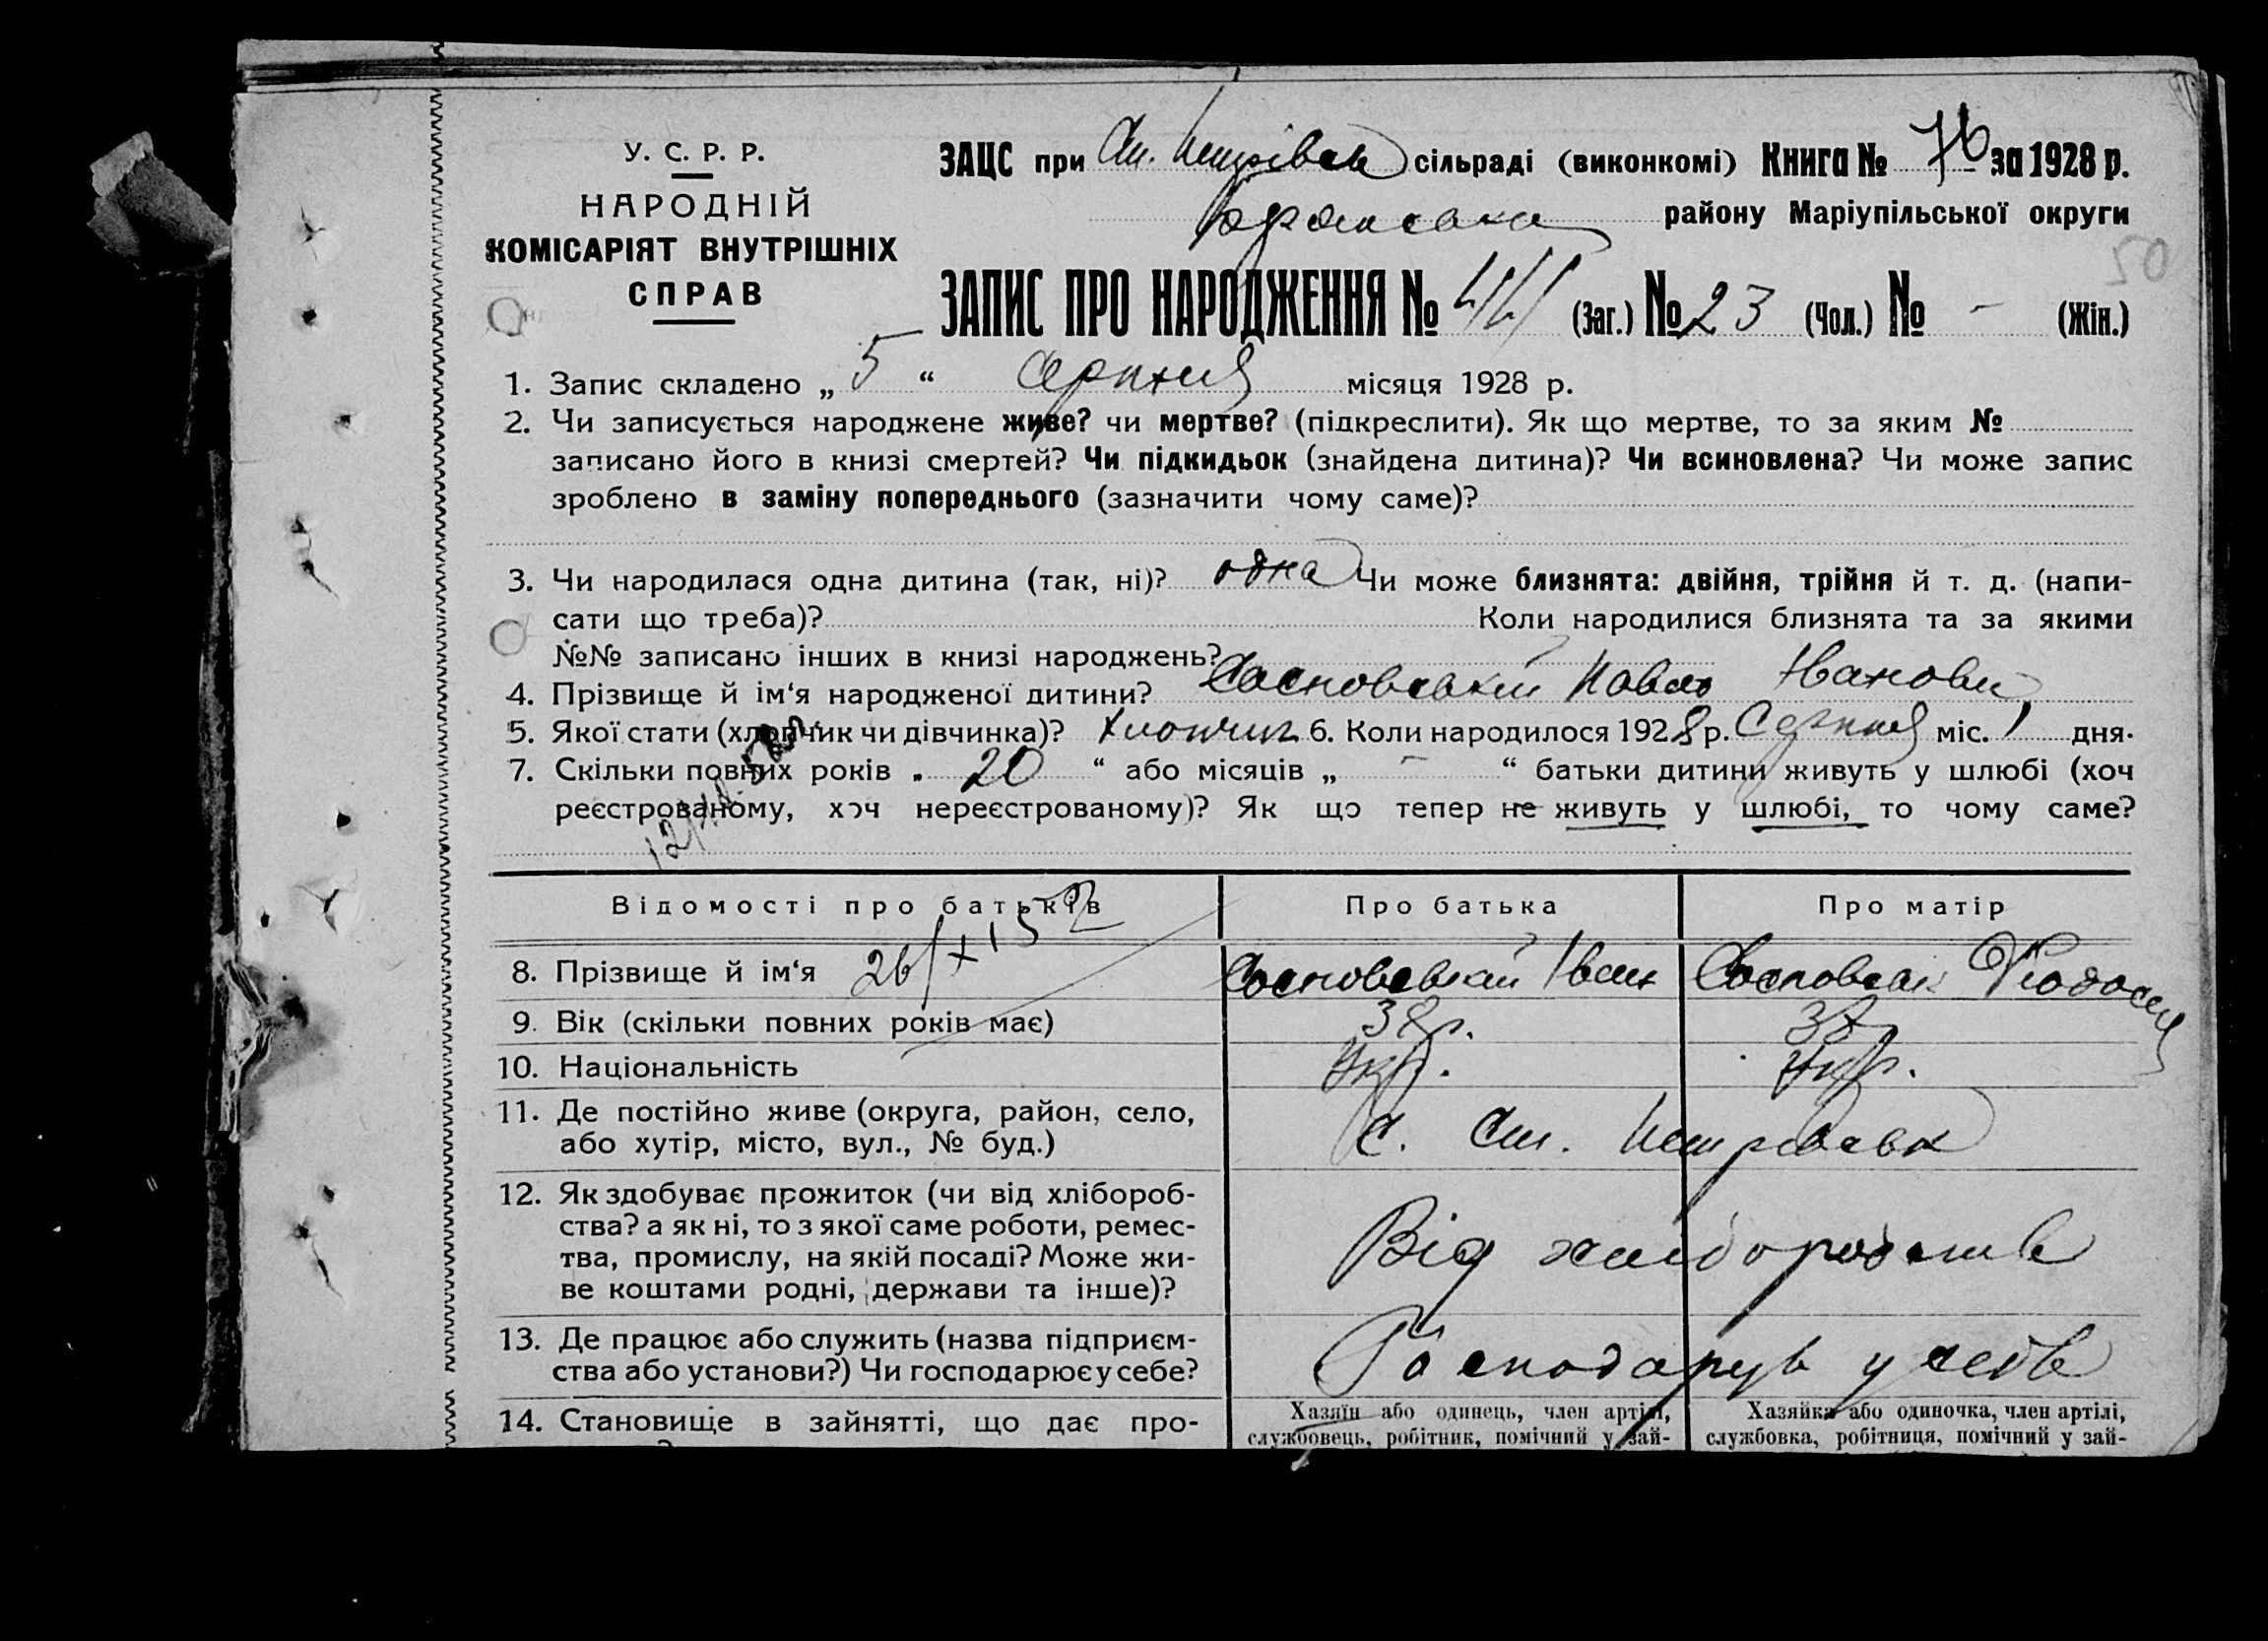 У. С. Р. Р.
НАРОДНІЙ
КОМІСАРІЯТ ВНУТРІШНІХ
СПРАВ
ЗАЦС при Ст. Петрівськ сільраді (виконкомі) Книга № за 1928 р.
району Маріупільської округи
50
ЗАПИС ПРО НАРОДЖЕННЯ № (Заг.) № 23 (Чол.) № - (Жін.)
1. Запис складено „ 5 “ Серпня місяця 1928 р.
2. Чи записується народжене живе? чи мертве? (підкреслити). Як що мертве, то за яким №
записано його в книзі смертей? Чи підкидьок (знайдена дитина)? Чи всиновлена? Чи може запис
зроблено в заміну попереднього (зазначити чому саме)?
3. Чи народилася одна дитина (так, ні)? одна Чи може близнята: двійня, трійня й т. д. (напи-
сати що треба)? Коли народилися близнята та за якими
№№ записано інших в книзі народжень?
4. Прізвище й ім‘я народженої дитини? Сосновський Павло Іванови
5. Якої стати (хлопчик чи дівчинка)? хлопчик 6. Коли народилося 1928 р. Серпня міс. 1 дня.
7. Скільки повних років „ 20 “ або місяців „ - “ батьки дитини живуть у шлюбі (хоч
реєстрованому, хоч нереєстрованому)? Як що тепер не живуть у шлюбі, то чому саме?
Відомості про батьків Про батька Про матір
8. Прізвище й ім‘я Сосновський Іван Сосновськ Феодосия
9. Вік (скільки повних років має) 38 р. 37 р.
10. Національність Укр. Укр.
11. Де постійно живе (округа, район, село,
або хутір, місто, вул., № буд.) С. Ст. Петрівськ
12. Як здобуває прожиток (чи від хлібороб-
ства? а як ні, то з якої саме роботи, ремес-
тва, промислу, на якій посаді? Може жи-
ве коштами родні, держави та інше)? Від хліборобств
13. Де працює або служить (назва підприєм-
ства або установи?) Чи господарює у себе? Господарує у себе
14. Становище в зайнятті, що дає про-
Хазяїн або одинець, член артілі,
службовець, робітник, помічний у зай-
Хазяйка або одиночка, член артілі,
службовка, робітниця, помічний у зай-